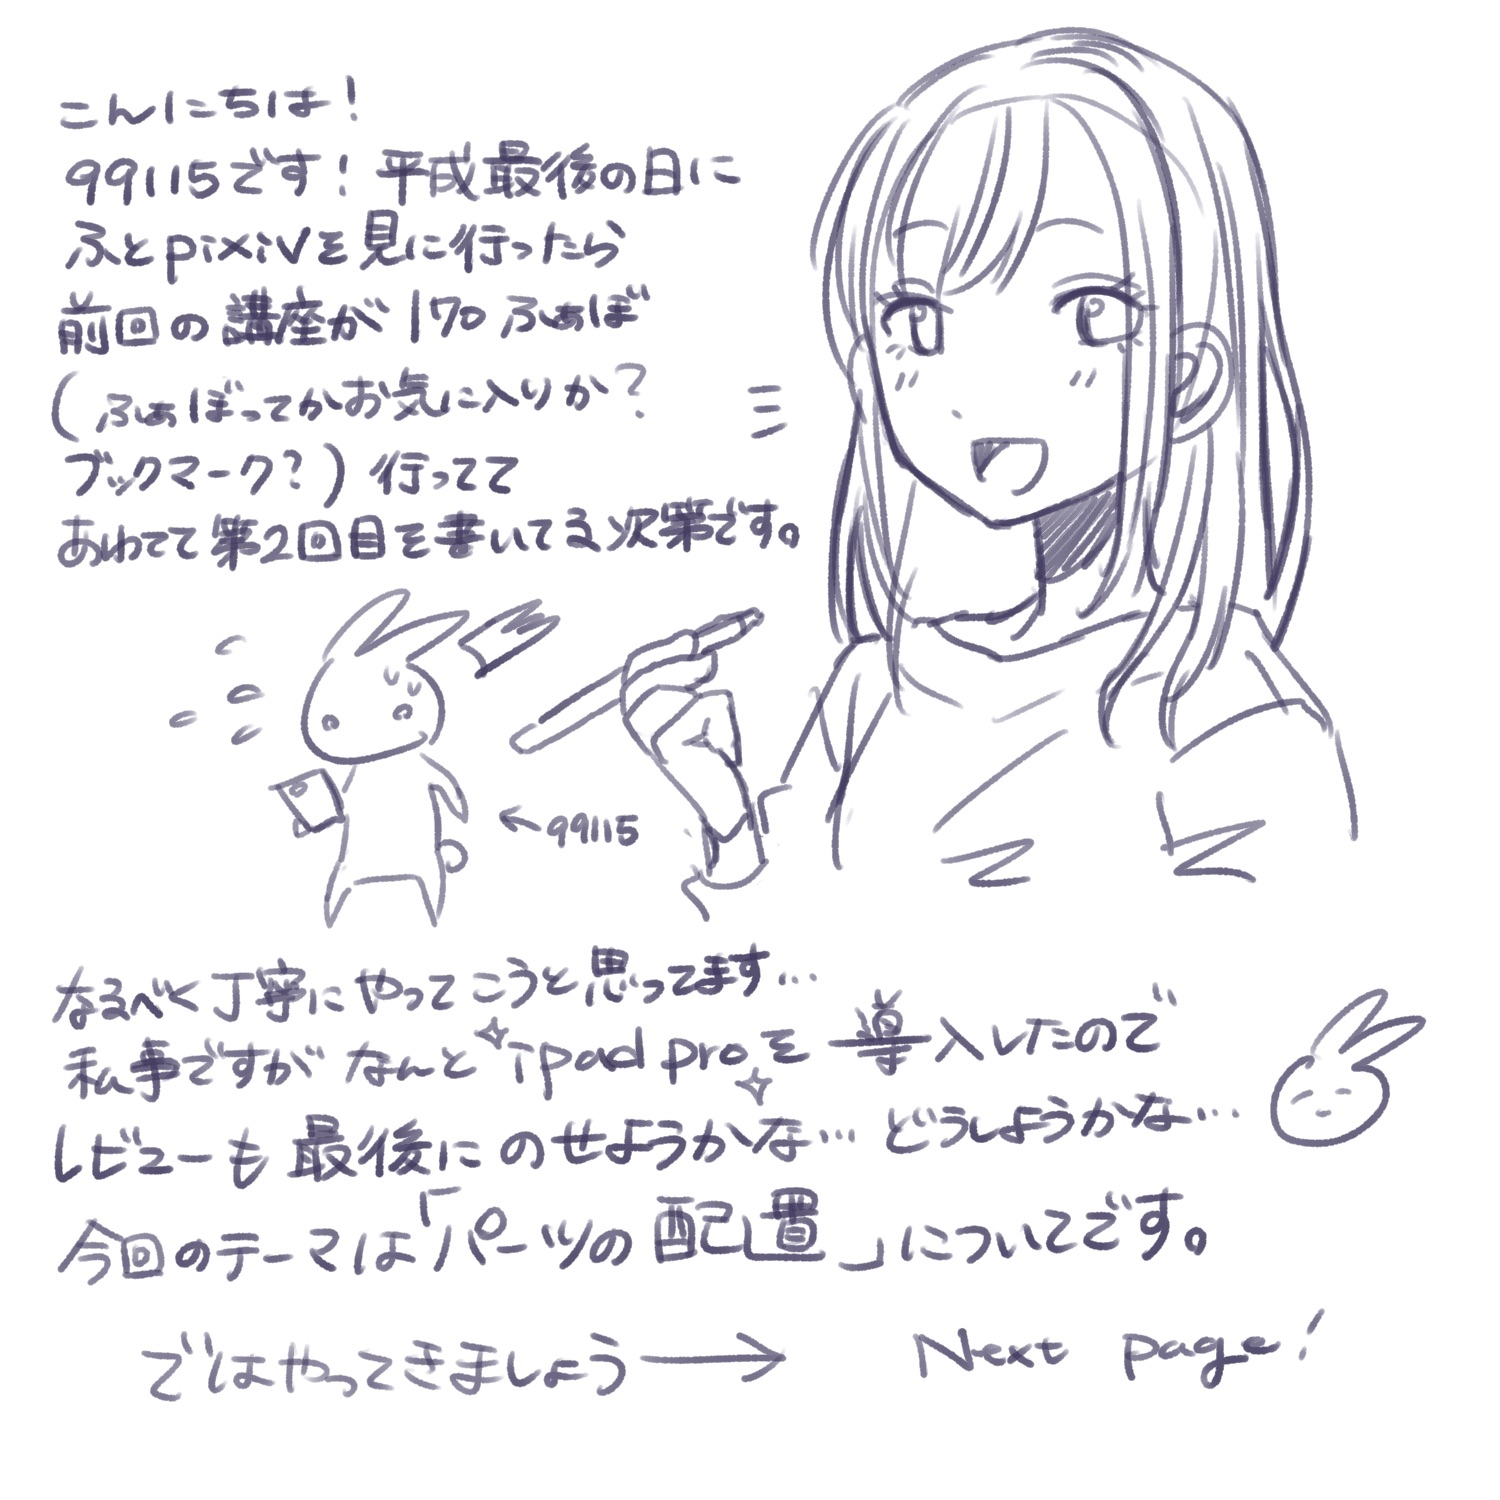 こんにちは!
99115です! 平成最後の日に
ふとpixivを見に行ったら
前回の講座が170ふぁぼ
(ふぁぼってかお気に入りか?
ブックマーク?) 行ってて
あわてて第2回目を書いてる次第です。
←99115
なるべく丁寧にやってこうと思ってます…
私事ですが なんと ipad pro を 導入したので
レビューも最後にのせようかな… どうしようかな…
今回のテーマは「パーツの配置」についてです。
ではやってきましょう→ Next page!